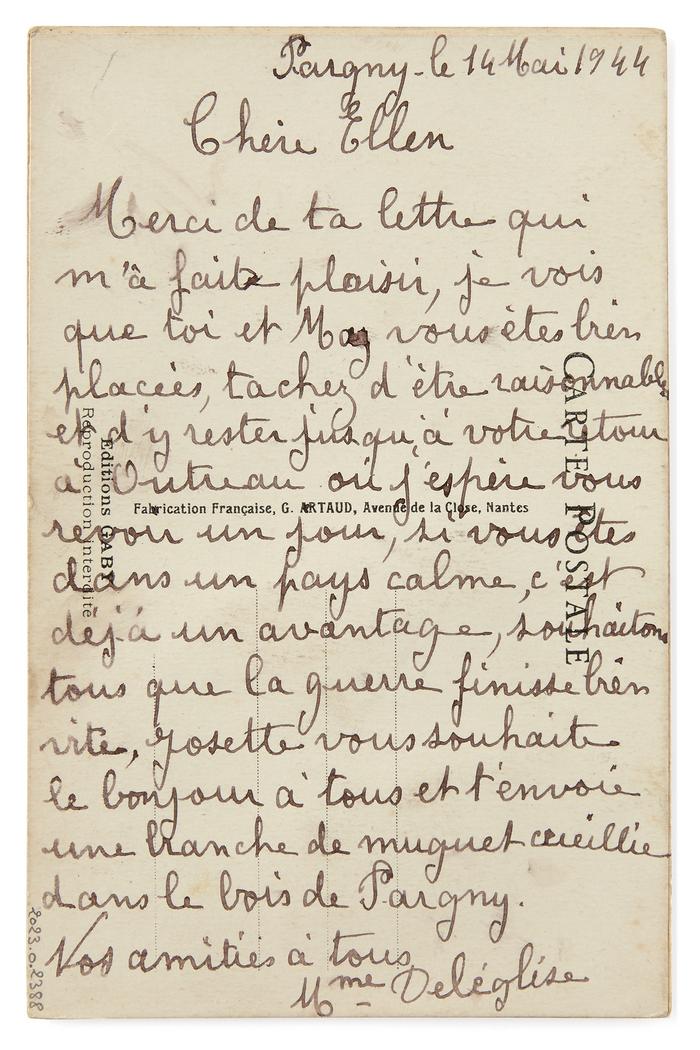 Pargny-le 14 Mai 1944
Chère Ellen
Merci de ta lettre qui
m'à faite plaisir, je vois
que toi et May vous êtes bien
placées, tachez d'être raisonnables
et d'y rester jusqu'à votre retour
à Outreau où j'espère vous
revoir un jour, si vous êtes
dans un pays calme, c'est
déjà un avantage, souhaitons
tous que la guerre finisse bien
vite, Josette vous souhaite
le bonjour à tous et t'envoie
une branche de muguet cueillie
dans le bois de Pargny.
Nos amitiés à tous
Mme Deléglise
CARTE POSTALE
Fabrication Française, G. ARTAUD, Avenue de la Close, Nantes
Editions GABY
Reproduction interdite
2023.0.2388